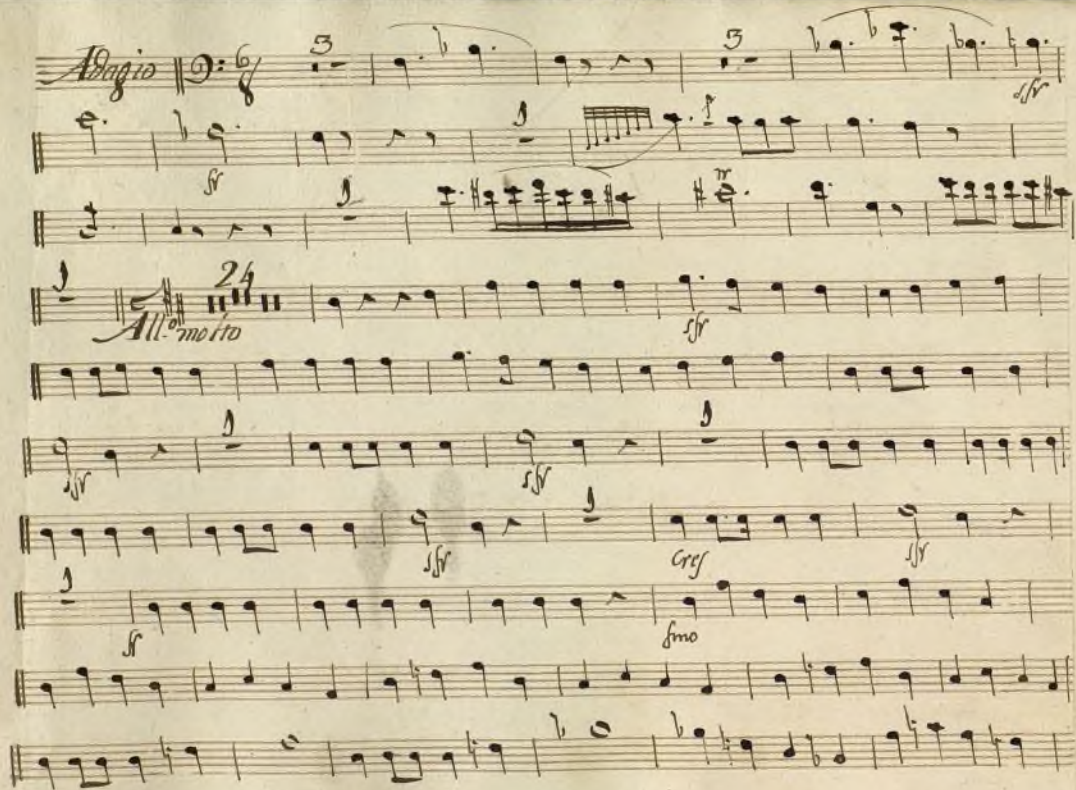 Adagio 6 8 3 3
sfr
1 1
fr
1 tr
1 24
All.º molto sfr
1 1
sfr sfr
1
sfr Cres sfr
1
fr fmo